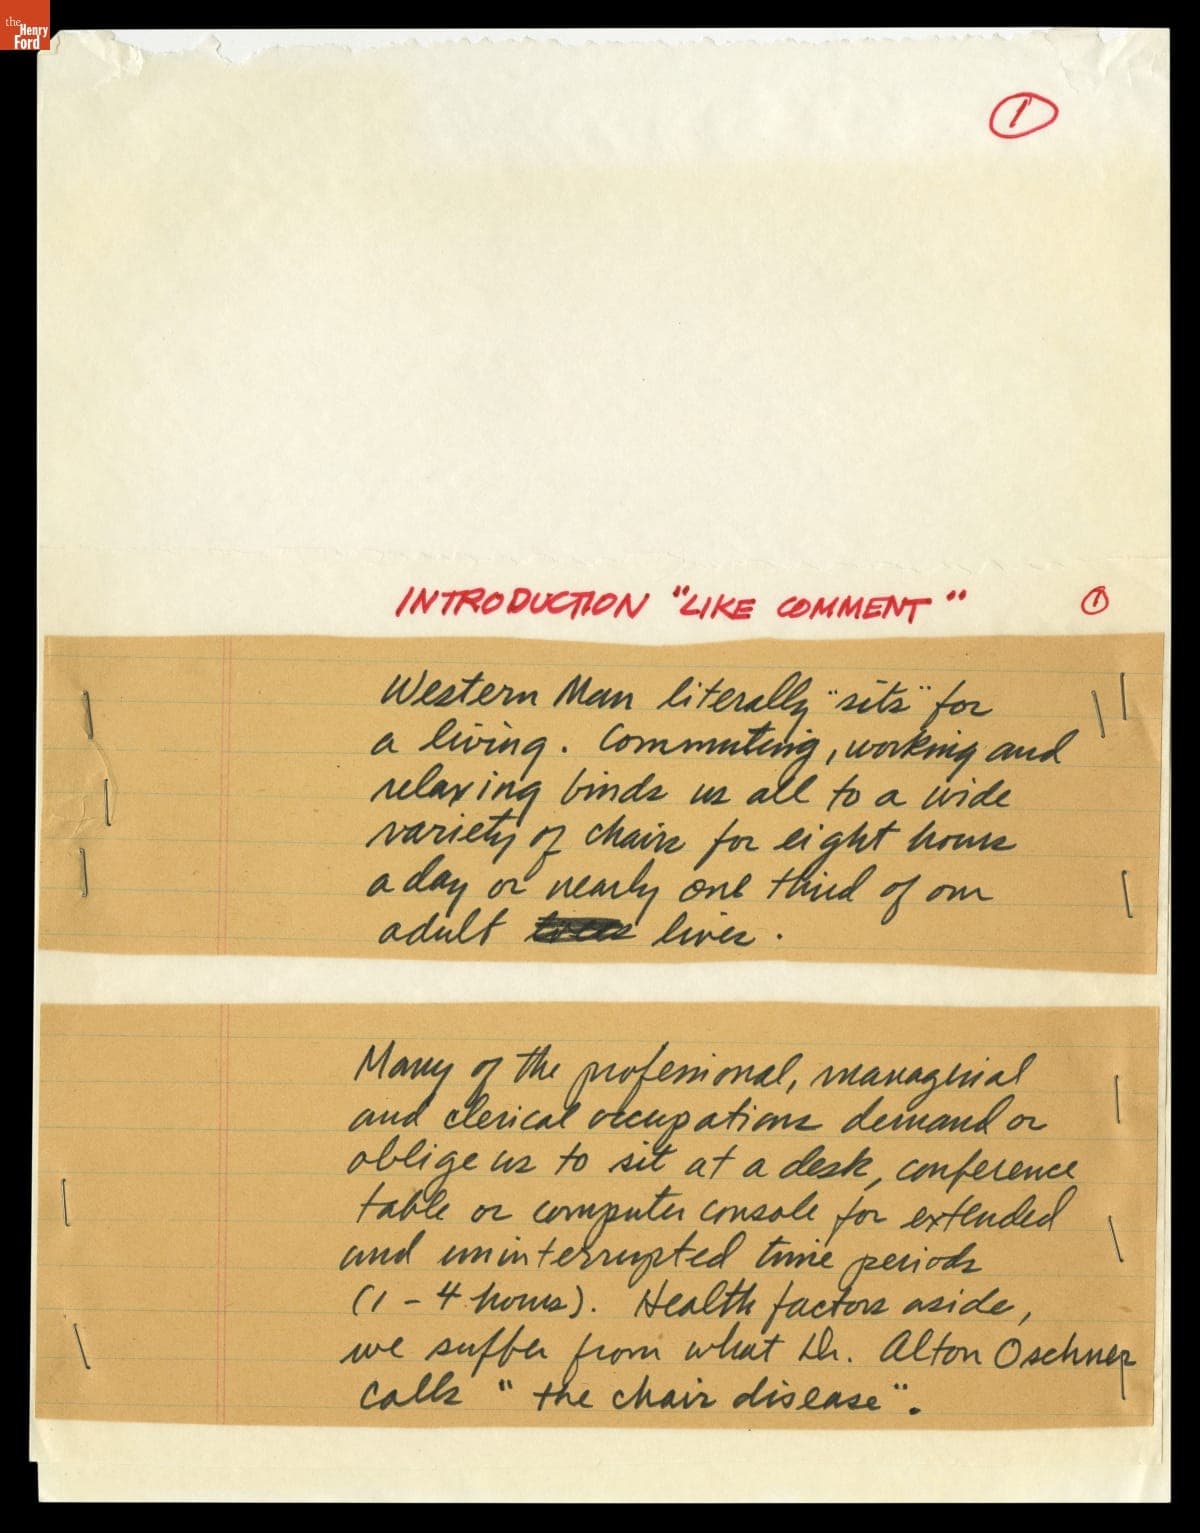 the
Henry
Ford
1
INTRODUCTION "LIKE COMMENT"
1
Western Man literally "sits" for
a living. Commuting, working and
relaxing binds us all to a wide
variety of chairs for eight hours
a day or nearly one third of our
adult lives.
Many of the professional, managerial
and clerical occupations demand or
oblige us to sit at a desk, conference
table or computer console for extended
and uninterrupted time periods
(1 - 4 hours). Health factors aside,
we suffer from what Dr. Alton Oschner
calls "the chair disease".